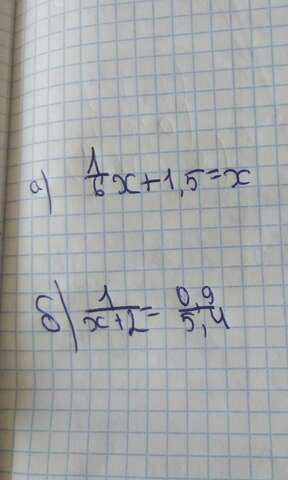 а) 1/6 x + 1,5 = x
б) 1/(x+2) = 0,9/5,4